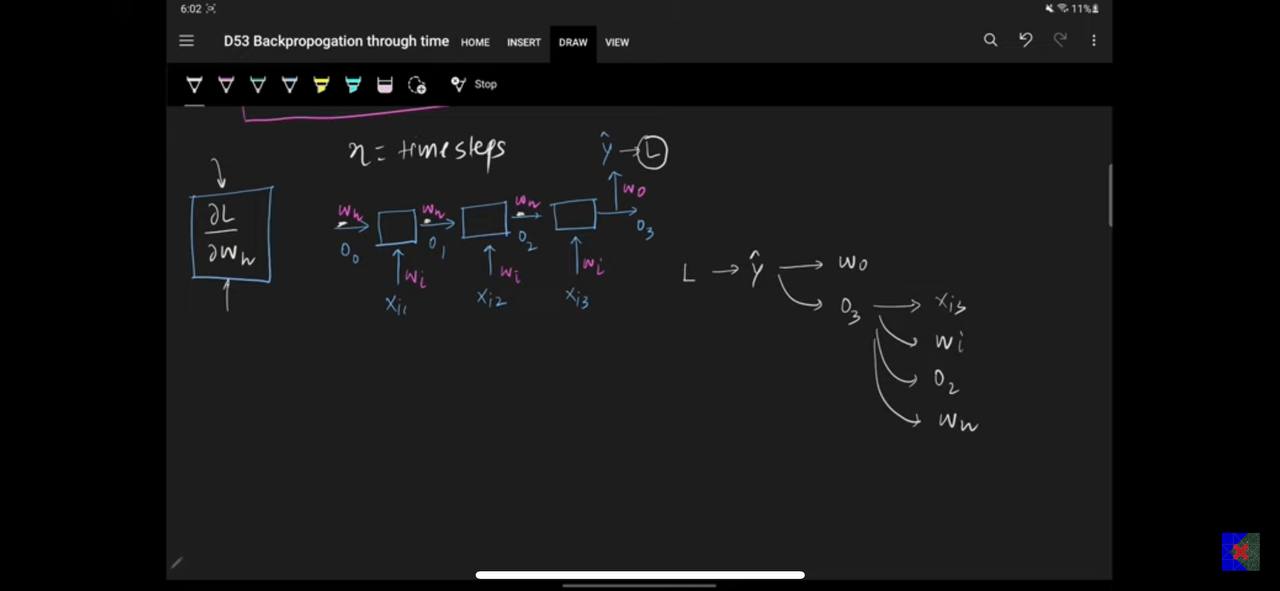 6:02 11%
D53 Backpropogation through time HOME INSERT DRAW VIEW
Stop
n = timesteps
ŷ → L
∂L
∂Wh
Wh Wh Wh Wo
O₀ O₁ O₂ O₃
Wi Wi Wi
Xi1 Xi2 Xi3
L → ŷ → Wo
O₃ → Xi3
Wi
O₂
Wh